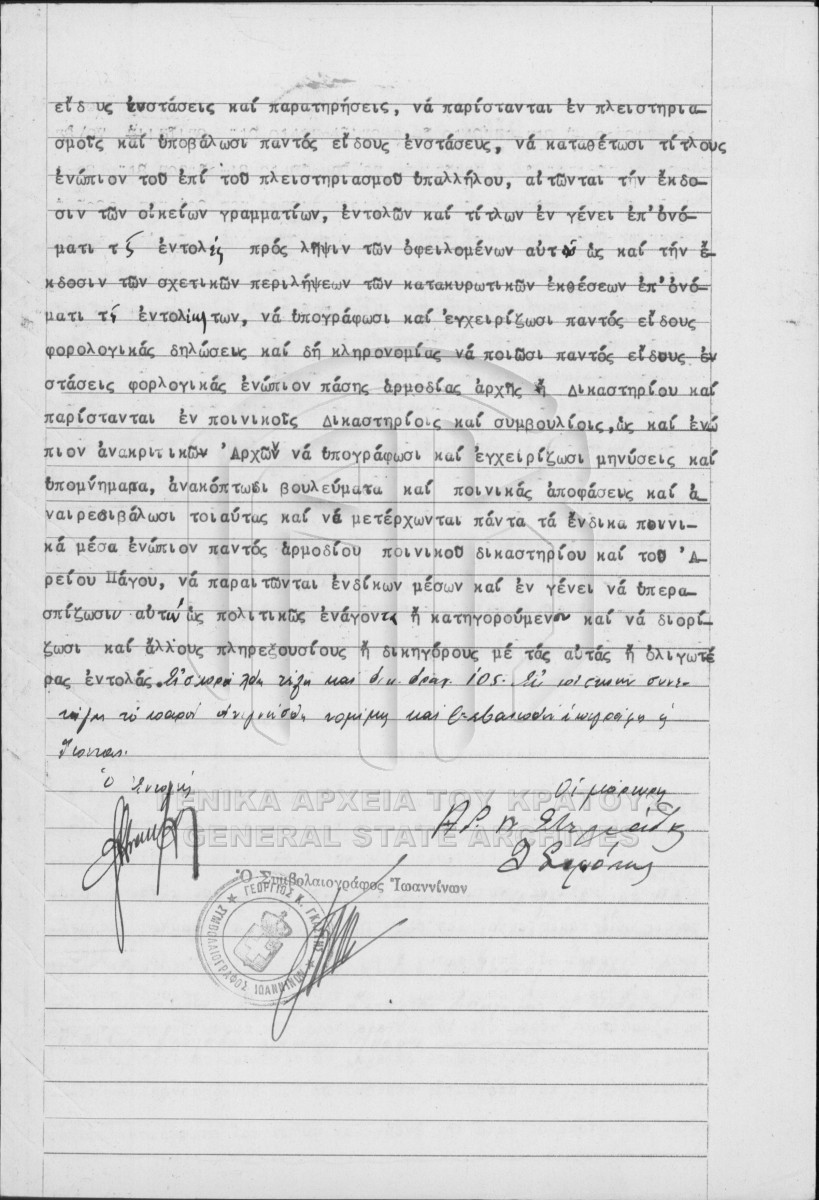 εἴδυς ἐνστάσεις καί παρατηρήσεις, νά παρίστανται ἐν πλειστηρια-
σμοῖς καί ὑποβάλωσι παντός εἴδους ἐνστάσευς, νά καταθέτωσι τίτλους
ἐνώπιον τοῦ ἐπί τοῦ πλειστηριασμοῦ ὑπαλλήλου, αἰτῶνται τήν ἔκδο-
σιν τῶν οἰκείων γραμματίων, ἐντολῶν καί τίτλων ἐν γένει ἐπ'ὀνό-
ματι τ ἐντολέ πρός λῆψιν τῶν ὀφειλομένων αὐτ ὡς καί τήν ἔ-
κδοσιν τῶν σχετικῶν περιλήψεων τῶν κατακυρωτικῶν ἐκθέσεων ἐπ'ὀνό-
ματι τ ἐντολ των, νά ὑπογράφωσι καί ἐγχειρίζωσι παντός εἴδους
φορολογικάς δηλώσεις καί δή κληρονομίας νά ποιῶσι παντός εἴδους ἐν
στάσεις φορλογικάς ἐνώπιον πάσης ἁρμοδίας ἀρχῆς ἤ Δικαστηρίου καί
παρίστανται ἐν ποινικοῖς Δικαστηρίοις καί συμβουλίοις,ὡς καί ἐνώ
πιον ἀνακριτικῶν Ἀρχῶν νά ὑπογράφωσι καί ἐγχειρίζωσι μηνύσεις καί
ὑπομνήμαρα, ἀνακόπτωσι βουλεύματα καί ποινικάς ἀποφάσεις καί ἀ-
ναιρεσιβάλωσι τοιαύτας καί νά μετέρχωνται πάντα τά ἔνδικα ποινι-
κά μέσα ἐνώπιον παντός ἁρμοδίου ποινικοῦ δικαστηρίου καί τοῦ Ἀ-
ρείου Πάγου, νά παραιτῶνται ἐνδίκων μέσων καί ἐν γένει νά ὑπερα-
σπίζωσιν αὐτ ὡς πολιτικῶς ἐνάγοντα ἤ κατηγορούμενον καί νά διορί-
ζωσι καί ἄλλους πληρεξουσίους ἤ δικηγόρους μέ τάς αὐτάς ἤ ὀλιγωτέ
ρας ἐντολάς. τέλη καί δικ. δραχ. 105. Εἰς πίστωσιν συνε-
τάγη τό παρόν νομίμως καί
Ὁ Ἐντολεύς Οἱ μάρτυρες
Ὁ Συμβολαιογράφος Ἰωαννίνων
ΣΥΜΒΟΛΑΙΟΓΡΑΦΟΣ ΙΩΑΝΝΙΝΩΝ
ΓΕΩΡΓΙΟΣ Κ.
ΓΕΝΙΚΑ ΑΡΧΕΙΑ ΤΟΥ ΚΡΑΤΟΥΣ
GENERAL STATE ARCHIVES